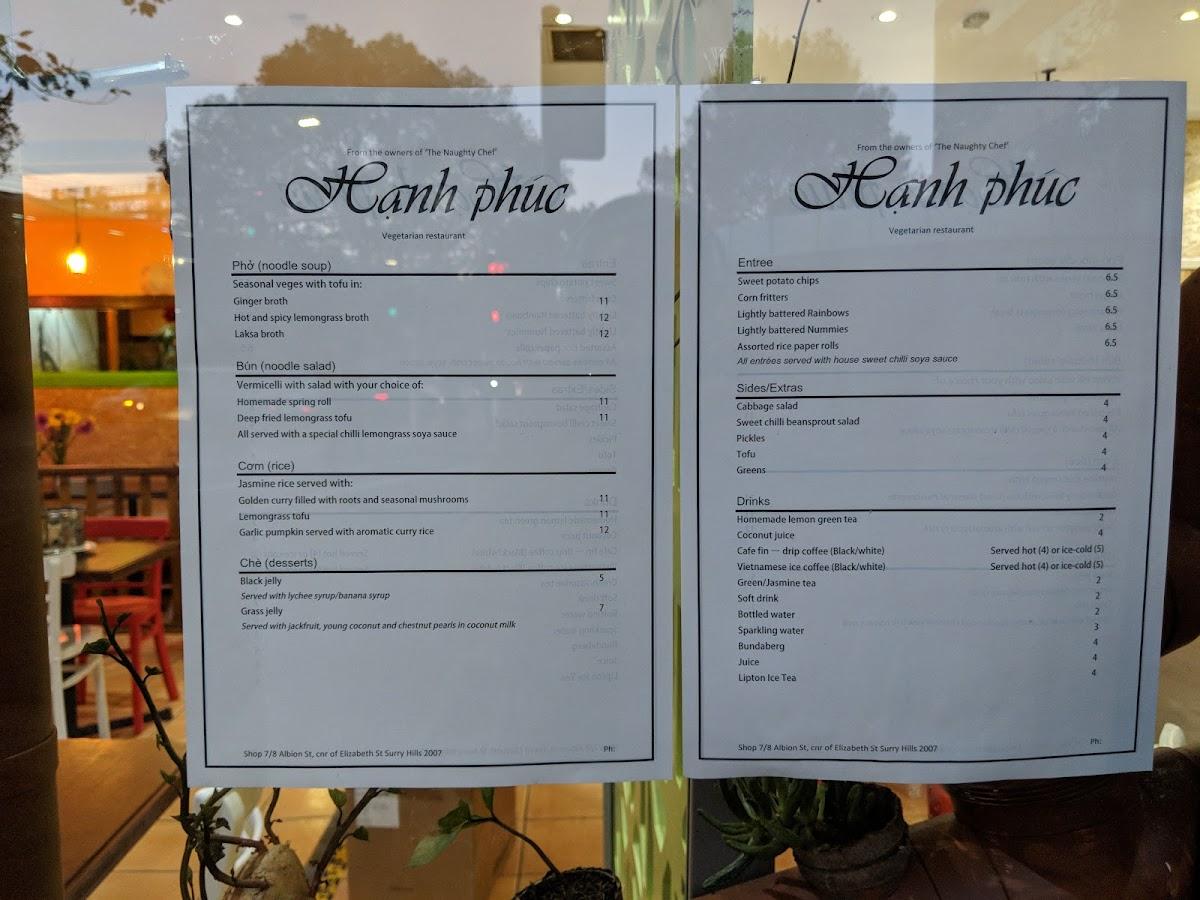 From the owners of 'The Naughty Chef'
Hạnh phúc
Vegetarian restaurant
Phở (noodle soup)
Seasonal veges with tofu in:
Ginger broth 11
Hot and spicy lemongrass broth 12
Laksa broth 12
Bún (noodle salad)
Vermicelli with salad with your choice of:
Homemade spring roll 11
Deep fried lemongrass tofu 11
All served with a special chilli lemongrass soya sauce
Cơm (rice)
Jasmine rice served with:
Golden curry filled with roots and seasonal mushrooms 11
Lemongrass tofu 11
Garlic pumpkin served with aromatic curry rice 12
Chè (desserts)
Black jelly 5
Served with lychee syrup/banana syrup
Grass jelly 7
Served with jackfruit, young coconut and chestnut pearls in coconut milk
Shop 7/8 Albion St, cnr of Elizabeth St Surry Hills 2007 Ph:
From the owners of 'The Naughty Chef'
Hạnh phúc
Vegetarian restaurant
Entree
Sweet potato chips 6.5
Corn fritters 6.5
Lightly battered Rainbows 6.5
Lightly battered Nummies 6.5
Assorted rice paper rolls 6.5
All entrées served with house sweet chilli soya sauce
Sides/Extras
Cabbage salad 4
Sweet chilli beansprout salad 4
Pickles 4
Tofu 4
Greens 4
Drinks
Homemade lemon green tea 2
Coconut juice 4
Cafe fin — drip coffee (Black/white) Served hot (4) or ice-cold (5)
Vietnamese ice coffee (Black/white) Served hot (4) or ice-cold (5)
Green/Jasmine tea 2
Soft drink 2
Bottled water 2
Sparkling water 3
Bundaberg 4
Juice 4
Lipton Ice Tea 4
Shop 7/8 Albion St, cnr of Elizabeth St Surry Hills 2007 Ph: